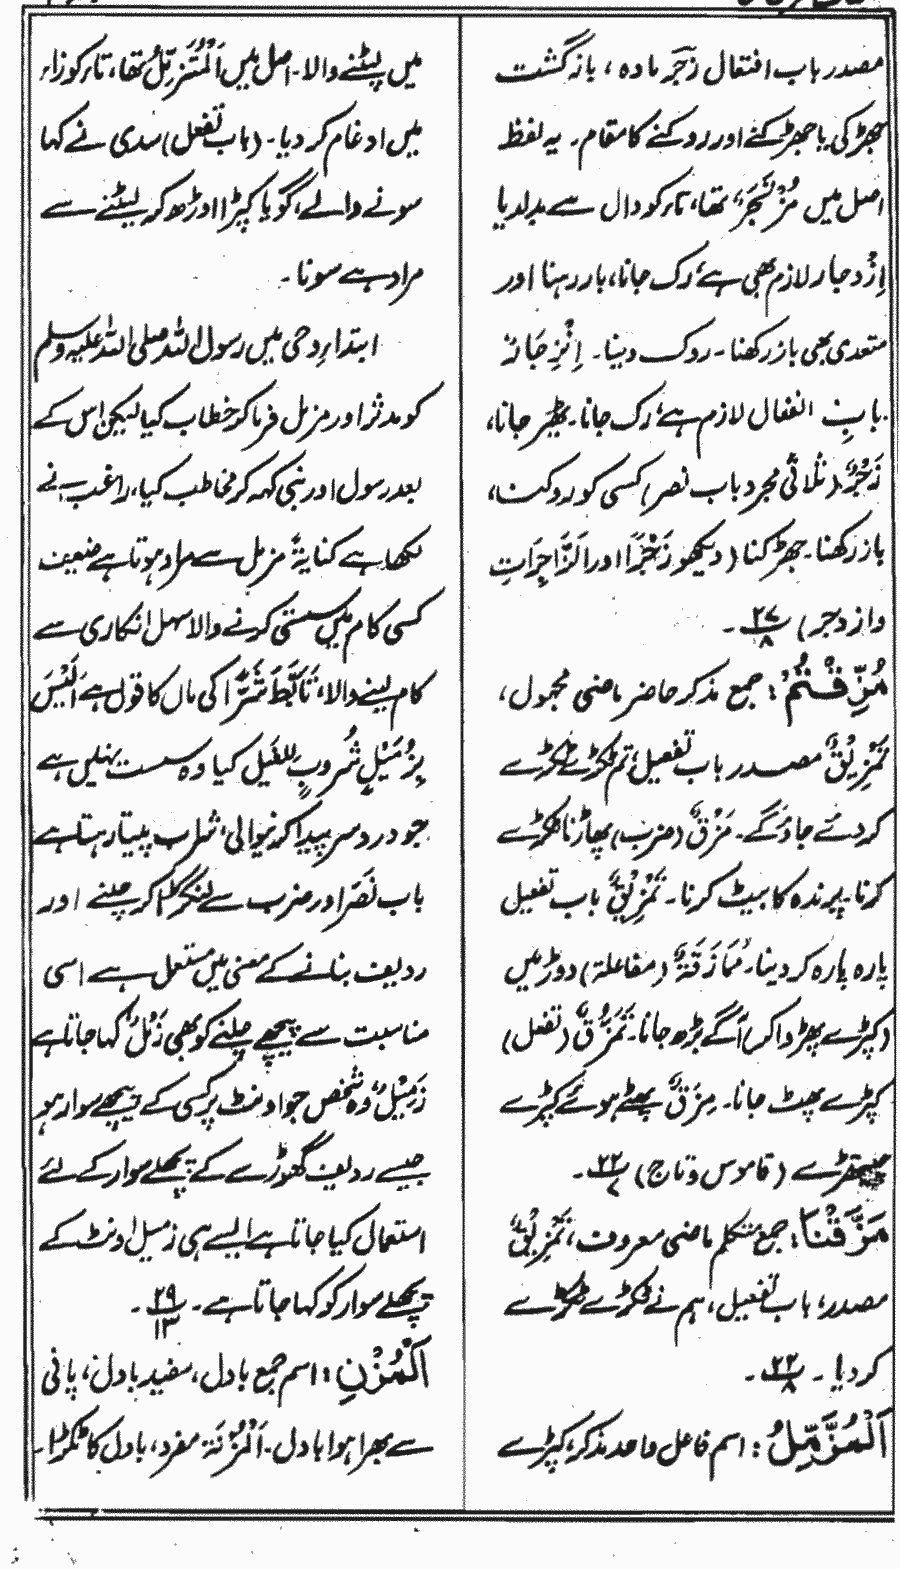 مصدر باب افتعال زجر مادہ ، بازگشت
جھڑکی یا جھڑکنے اور روکنے کا مقام۔ یہ لفظ
اصل میں مُزْتَجَرٌ تھا، تاء کو دال سے بدلدیا
اِزْدجار لازم بھی ہے رک جانا، باز رہنا اور
متعدی بھی باز رکھنا۔ روک دینا۔ اِنْزِجَارٌ
بابِ انفعال لازم ہے رک جانا۔ ٹھیر جانا،
زَجْرٌ (ثلاثی مجرد باب نصر) کسی کو روکنا،
باز رکھنا۔ جھڑکنا (دیکھو زَجْرًا اور الزَّاجِرَاتِ
وازدجر) ۲۷/۸ ۔
مُزِّقْتُمْ : جمع مذکر حاضر ماضی مجہول،
تَمْزِیْقٌ مصدر باب تفعیل، تم ٹکڑے ٹکڑے
کردئے جاؤگے۔ مَزْقٌ (ضرب) پھاڑنا ٹکڑے
کرنا۔ پرندہ کا بیٹ کرنا۔ تَمْزِیْقٌ باب تفعیل
پارہ پارہ کردینا۔ مُمَازَقَۃٌ (مفاعلۃ) دوڑ میں
(کپڑے پھڑوا کر) آگے بڑھ جانا۔ تَمَزُّقٌ (تفعل)
کپڑے پھٹ جانا۔ مِزَقٌ پھٹے ہوئے کپڑے
چیتھڑے (قاموس وتاج) ۲۲/۷ ۔
مَزَّقْنَا : جمع متکلم ماضی معروف، تَمْزِیْقٌ
مصدر، باب تفعیل، ہم نے ٹکڑے ٹکڑے
کردیا ۔ ۲۲/۸ ۔
اَلْمُزَّمِّلُ : اسم فاعل واحد مذکر، کپڑے
میں لپٹنے والا۔ اصل میں اَلْمُتَزَمِّلُ تھا، تاء کو زاء
میں ادغام کر دیا۔ (باب تفعل) سدی نے کہا
سونے والے، گویا کپڑا اوڑھ کر لیٹنے سے
مراد ہے سونا ۔
ابتداءِ وحی میں رسول اللہ صلی اللہ علیہ وسلم
کو مدثر اور مزمل فرما کر خطاب کیا لیکن اس کے
بعد رسول اور نبی کہہ کر مخاطب کیا، راغب نے
لکھا ہے کنایۃً مزمل سے مراد ہوتا ہے ضعیف
کسی کام میں سستی کرنے والا سہل انکاری سے
کام لینے والا، تَاَبَّطَ شَرًّا کی ماں کا قول ہے اَلَیْسَ
بِزُمَیْلٍ شُروبٍ لِلقَیل کیا وہ سست نہیں ہے
جو درد سر پیدا کرنیوالی شراب پیتا رہتا ہے
باب نَصَرَ اور ضرب سے لنگڑا کر چلنے اور
ردیف بنانے کے معنی میں مستعمل ہے اسی
مناسبت سے پیچھے چلنے کو بھی زَمْلٌ کہا جاتا ہے
زَمِیْلٌ وہ شخص جو اونٹ پر کسی کے پیچھے سوار ہو
جیسے ردیف گھوڑے کے پچھلے سوار کے لئے
استعمال کیا جاتا ہے ایسے ہی زمیل اونٹ کے
پچھلے سوار کو کہا جاتا ہے۔ ۲۹/۱۳ ۔
اَلْمُزْنِ : اسم جمع بادل، سفید بادل، پانی
سے بھرا ہوا بادل۔ اَلْمُزْنَۃ مفرد، بادل کا ٹکڑا۔